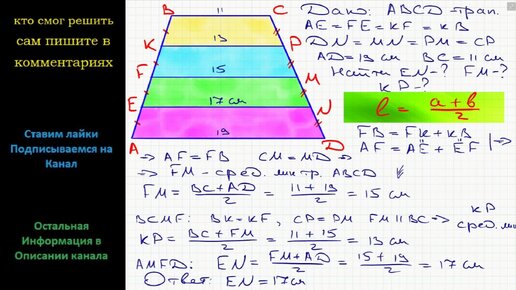 кто смог решить
сам пишите в
комментариях
Ставим лайки
Подписываемся на
Канал
Остальная
Информация в
Описании канала
B 11 C
K 13 P
F 15 M
E 17 см N
A 19 D
Дано: ABCD трап.
AE = FE = KF = KB
DN = MN = PM = CP
AD = 19 см BC = 11 см
Найти EN-? FM-?
KP-?
l = a + b / 2
FB = FK + KB
AF = AE + EF | →
→ AF = FB CM = MD →
→ FM – сред. лин. тр. ABCD
FM = BC + AD / 2 = 11 + 19 / 2 = 15 см
BCMF: BK = KF, CP = PM FM || BC → KP
сред. ли
KP = BC + FM / 2 = 11 + 15 / 2 = 13 см
AMFD: EN = FM + AD / 2 = 15 + 19 / 2 = 17 см
Ответ: EN = 17 см